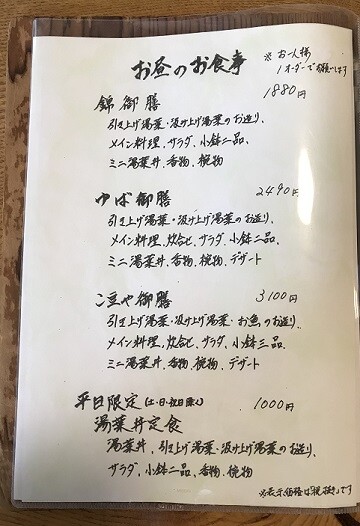 お昼のお食事
※お一人様
1オーダーでお願いします
錦御膳 1880円
引き上げ湯葉・汲み上げ湯葉のお造り、
メイン料理、サラダ、小鉢二品、
ミニ湯葉丼、香物、椀物
ゆば御膳 2490円
引き上げ湯葉・汲み上げ湯葉のお造り、
メイン料理、炊合せ、サラダ、小鉢二品、
ミニ湯葉丼、香物、椀物、デザート
こ豆や御膳 3100円
引き上げ湯葉・汲み上げ湯葉・お魚のお造り、
メイン料理、炊合せ、サラダ、小鉢三品、
ミニ湯葉丼、香物、椀物、デザート
平日限定(土・日・祝日除く) 1000円
湯葉丼定食
湯葉丼、引き上げ湯葉・汲み上げ湯葉のお造り、
サラダ、小鉢二品、香物、椀物
※表示価格は税抜きです